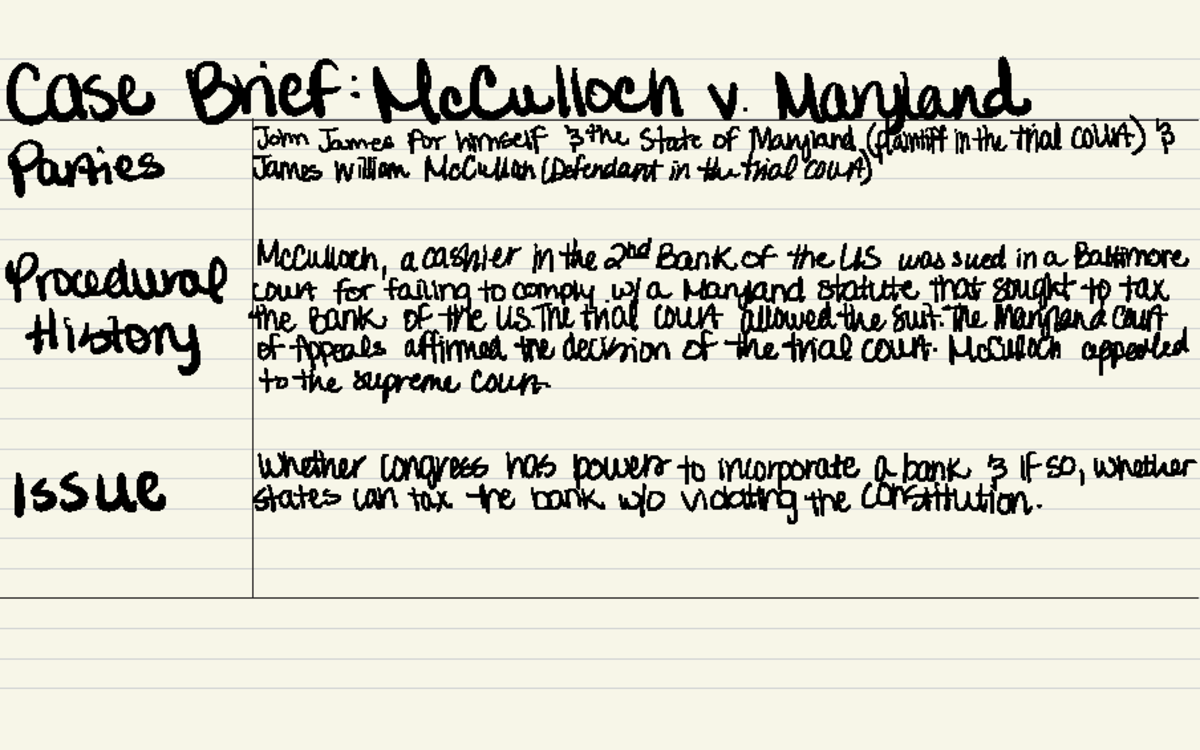 Case Brief: McCulloch v. Maryland
Parties
John James for himself & the State of Maryland (plaintiff in the trial court) &
James William McCulloh (Defendant in the trial court)
Procedural
History
McCulloch, a cashier in the 2nd Bank of the US was sued in a Baltimore
court for failing to comply w/ a Maryland statute that sought to tax
the Bank of the US. The trial court allowed the suit. The Maryland Court
of Appeals affirmed the decision of the trial court. McCulloch appealed
to the supreme court.
Issue
Whether Congress has power to incorporate a bank & if so, whether
states can tax the bank w/o violating the constitution.